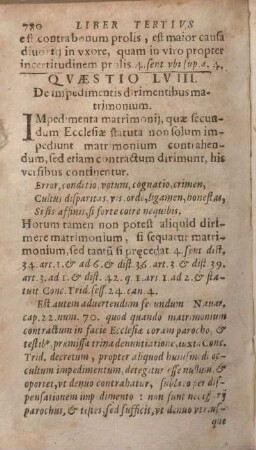 780 LIBER TERTIVS
est contra bonum prolis, est maior causa
diuortij in vxore, quam in viro propter
incertitudinem prolis 4. sent vbi sup. a. 4.
QVÆSTIO LVIII.
De impedimentis dirimentibus ma-
trimonium.
IMpedimenta matrimonij, quæ secun-
dum Ecclesiæ statuta non solum im-
pediunt matrimonium contrahen-
dum, sed etiam contractum dirimunt, his
versibus continentur.
Error, conditio, votum, cognatio, crimen,
Cultus disparitas, vis, ordo, ligamen, honestas,
Si sis affinis, si forte coire nequibis.
Horum tamen non potest aliquid diri-
mere matrimonium, si sequatur matri-
monium, sed tantū si præcedat 4. sent dist.
34. art. 1. & ad 6. dist 36. art. 3 & dist 39.
art. 2. ad 1. & dist. 42. q. 1. art. 1. ad 2. & sta-
tuit Conc. Trid. sess. 24. can. 4.
Est autem aduertendum secundum Nauar.
cap. 22. num. 70. quod quando matrimonium
contractum in facie Ecclesiæ coram parocho, &
testibꝰ. præmissa trina denuntiatione, iuxta Conc.
Trid. decretum, propter aliquod huiusmodi oc-
cultum impedimentum, detegitur esse nullum &
oportet, vt denuo contrahatur, sublato per dis-
pensationem impedimento : non sunt necessarij
parochus, & testes, sed sufficit, vt denuo vterus-
que